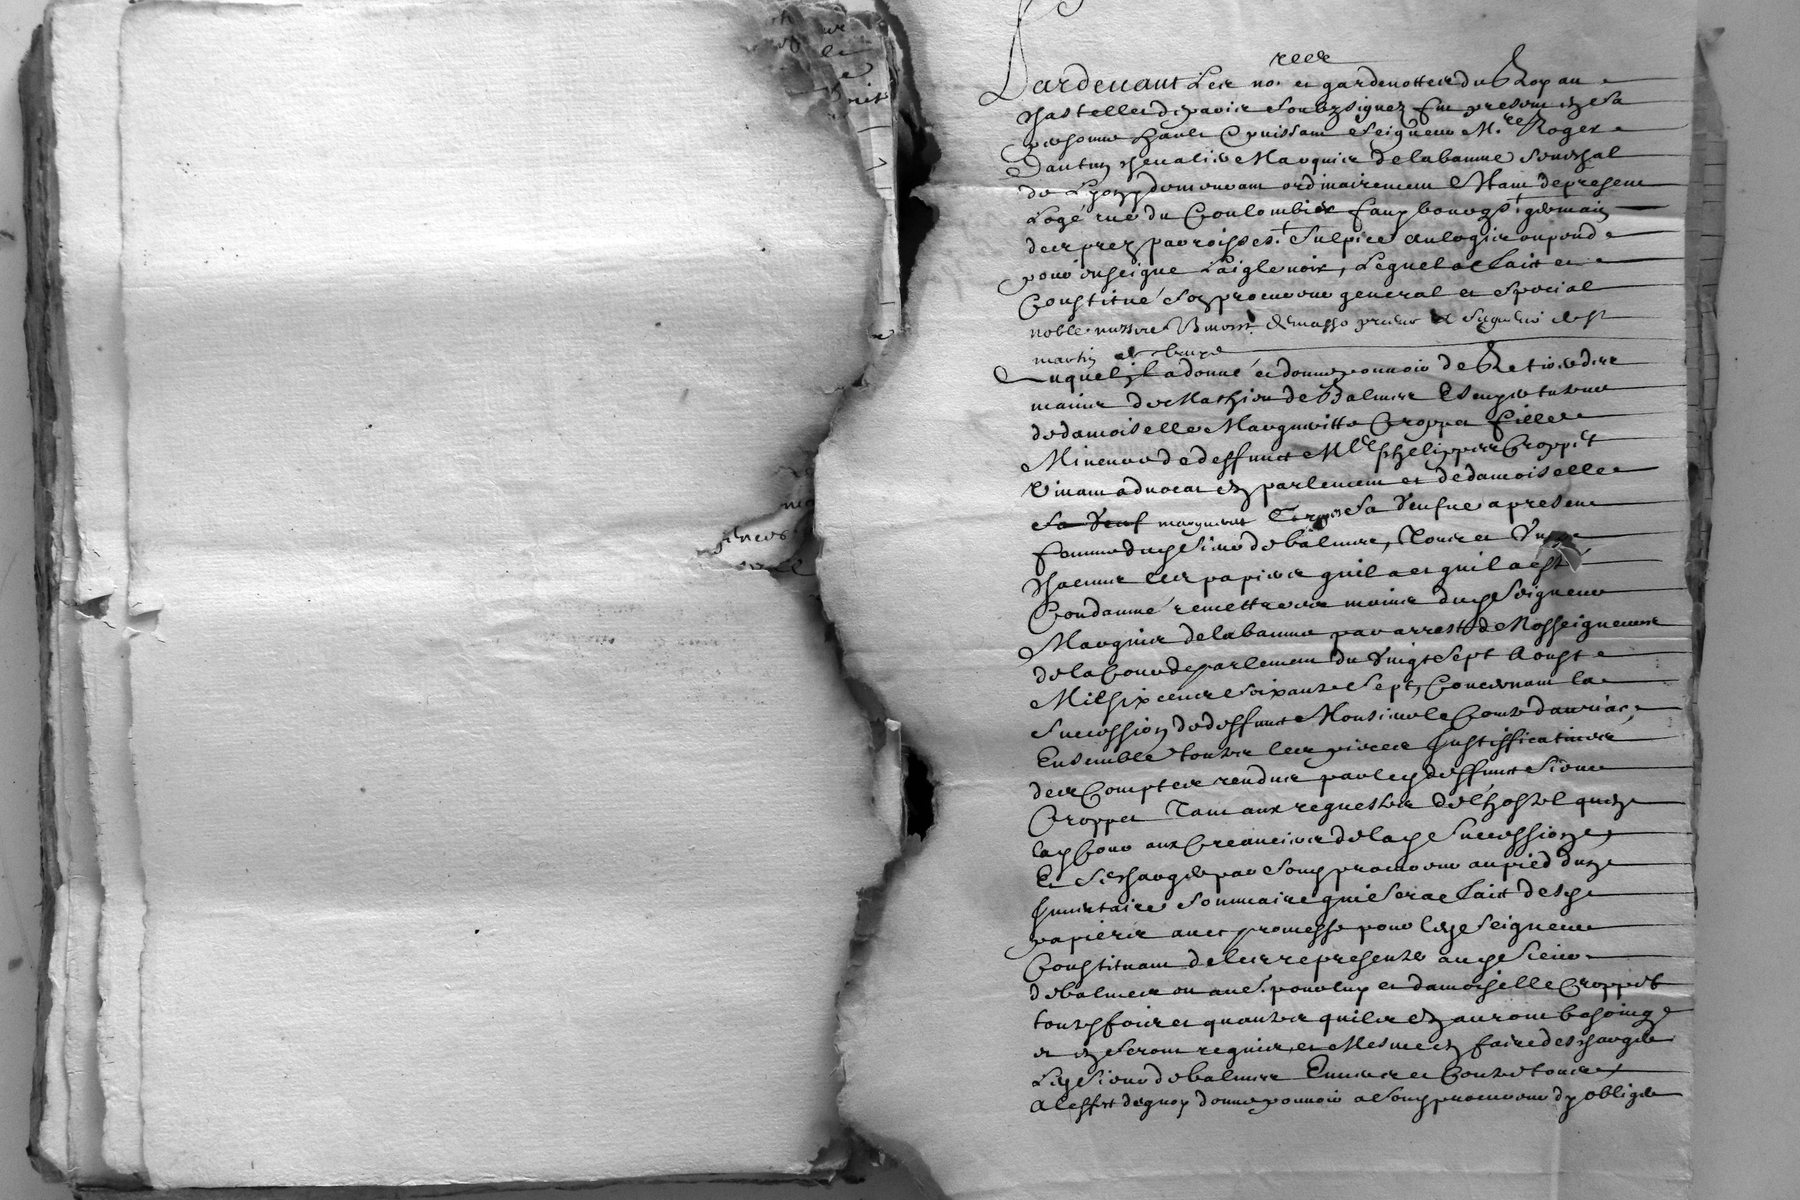 Pardevant Les no.res et gardenottes du Roy au
Chastellet de paris soubzsignez fut present en sa
personne hault & puissant Seigneur M.re Roger
Dautun chevalier Marquis de la baume senechal
de Lyon y demeurant ordinairement Estant de present
Logé rue du Coulombier fauxbourg S.t germain
des prez parroisse S.t Sulpice au logis ou pend
pour enseigne L'aigle noir, Lequel a faict et
Constitué son procureur general et special
noble messire prieur et seigneur de St
martin
Auquel il a donné et donne pouvoir de Retirer des
mains de Mathieu de Balmes Et
de damoiselle Margueritte Croppet fille
Mineure de deffunct M.re Phelippes Croppet
vivant advocat en parlement et de damoiselle
sa veuf marguerite sa veufve a present
femme dud Sieur de balmes, Tous et Un
chacuns les papiers qu'il a et qu'il a esté
Condamné remettre es mains dud Seigneur
Marquis de la baume par arrest de Nosseigneurs
de la Cour de parlement du vingt sept Aoust
Mil six cens soixante sept, Concernant la
succession de deffunct Monsieur le Comte
Ensemble toutes les pieces Justifficatives
des Comptes rendus par led deffunct sieur
Croppet Tant aux requestes de l'hostel qu'en
lad Cour aux Creanciers de lad succession,
Et s'en charger par sond procureur au pied dun
Inventaire sommaire qui sera faict desd
papiers avec promesse pour led Seigneur
Constituant de les representer aud Sieur
de balmes ou aud. pour luy et damoiselle Croppet
toutesfois et quantes quilz en auront besoing
et en seront requis, et Mesme en faire descharger
Led Sieur de balmes Envers et Contre tous
A l'effet de quoy donne pouvoir a sond procureur dy obliger